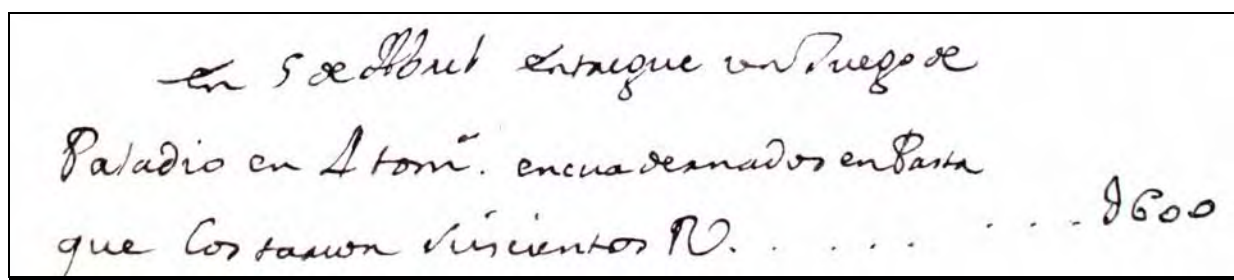 En 5 de Abril entregue un Juego de
Paladio en 4 tom.ˢ encuadernados en Pasta
que Costaron Seiscientos Rˢ. . . . . . . . . 600